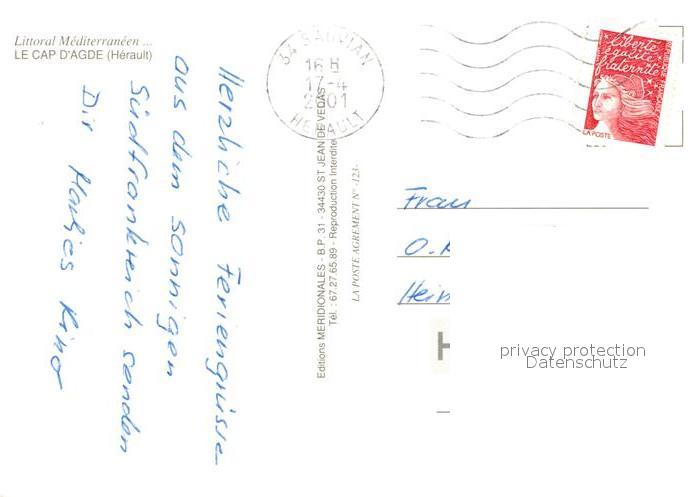 Littoral Méditerranéen ...
LE CAP D'AGDE (Hérault)
Herzliche Feriengrüsse
aus dem sonnigen
Südfrankreich senden
Dir
34 SAUVIAN
16 H
17-4
2001
HERAULT
Editions MERIDIONALES - B.P. 31 - 34430 ST JEAN DE VEDAS
Tél. : 67.27.65.89 - Reproduction Interdite
LA POSTE AGREMENT N° -123-
liberté
égalité
fraternité
LA POSTE
Frau
O.
Hein
H
privacy protection
Datenschutz